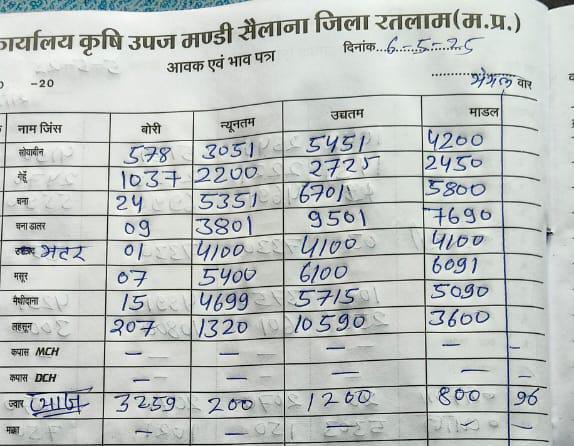 कार्यालय कृषि उपज मण्डी सैलाना जिला रतलाम(म.प्र.)
आवक एवं भाव पत्र दिनांक...6-5-25
-20 मंगल वार
नाम जिंस बोरी न्यूनतम उच्चतम माडल
सोयाबीन 578 3051 5451 4200
गेहूँ 1037 2200 2725 2450
चना 24 5351 6701 5800
चना डालर 09 3801 9501 7690
मटर 01 4100 4100 4100
मसूर 07 5400 6100 6091
मैथीदाना 15 4699 5715 5090
लहसून 207 1320 10590 3600
कपास MCH - - - - -
कपास DCH - - - - -
ज्वार प्याज 3259 200 1200 800 96
मक्का - - - - -